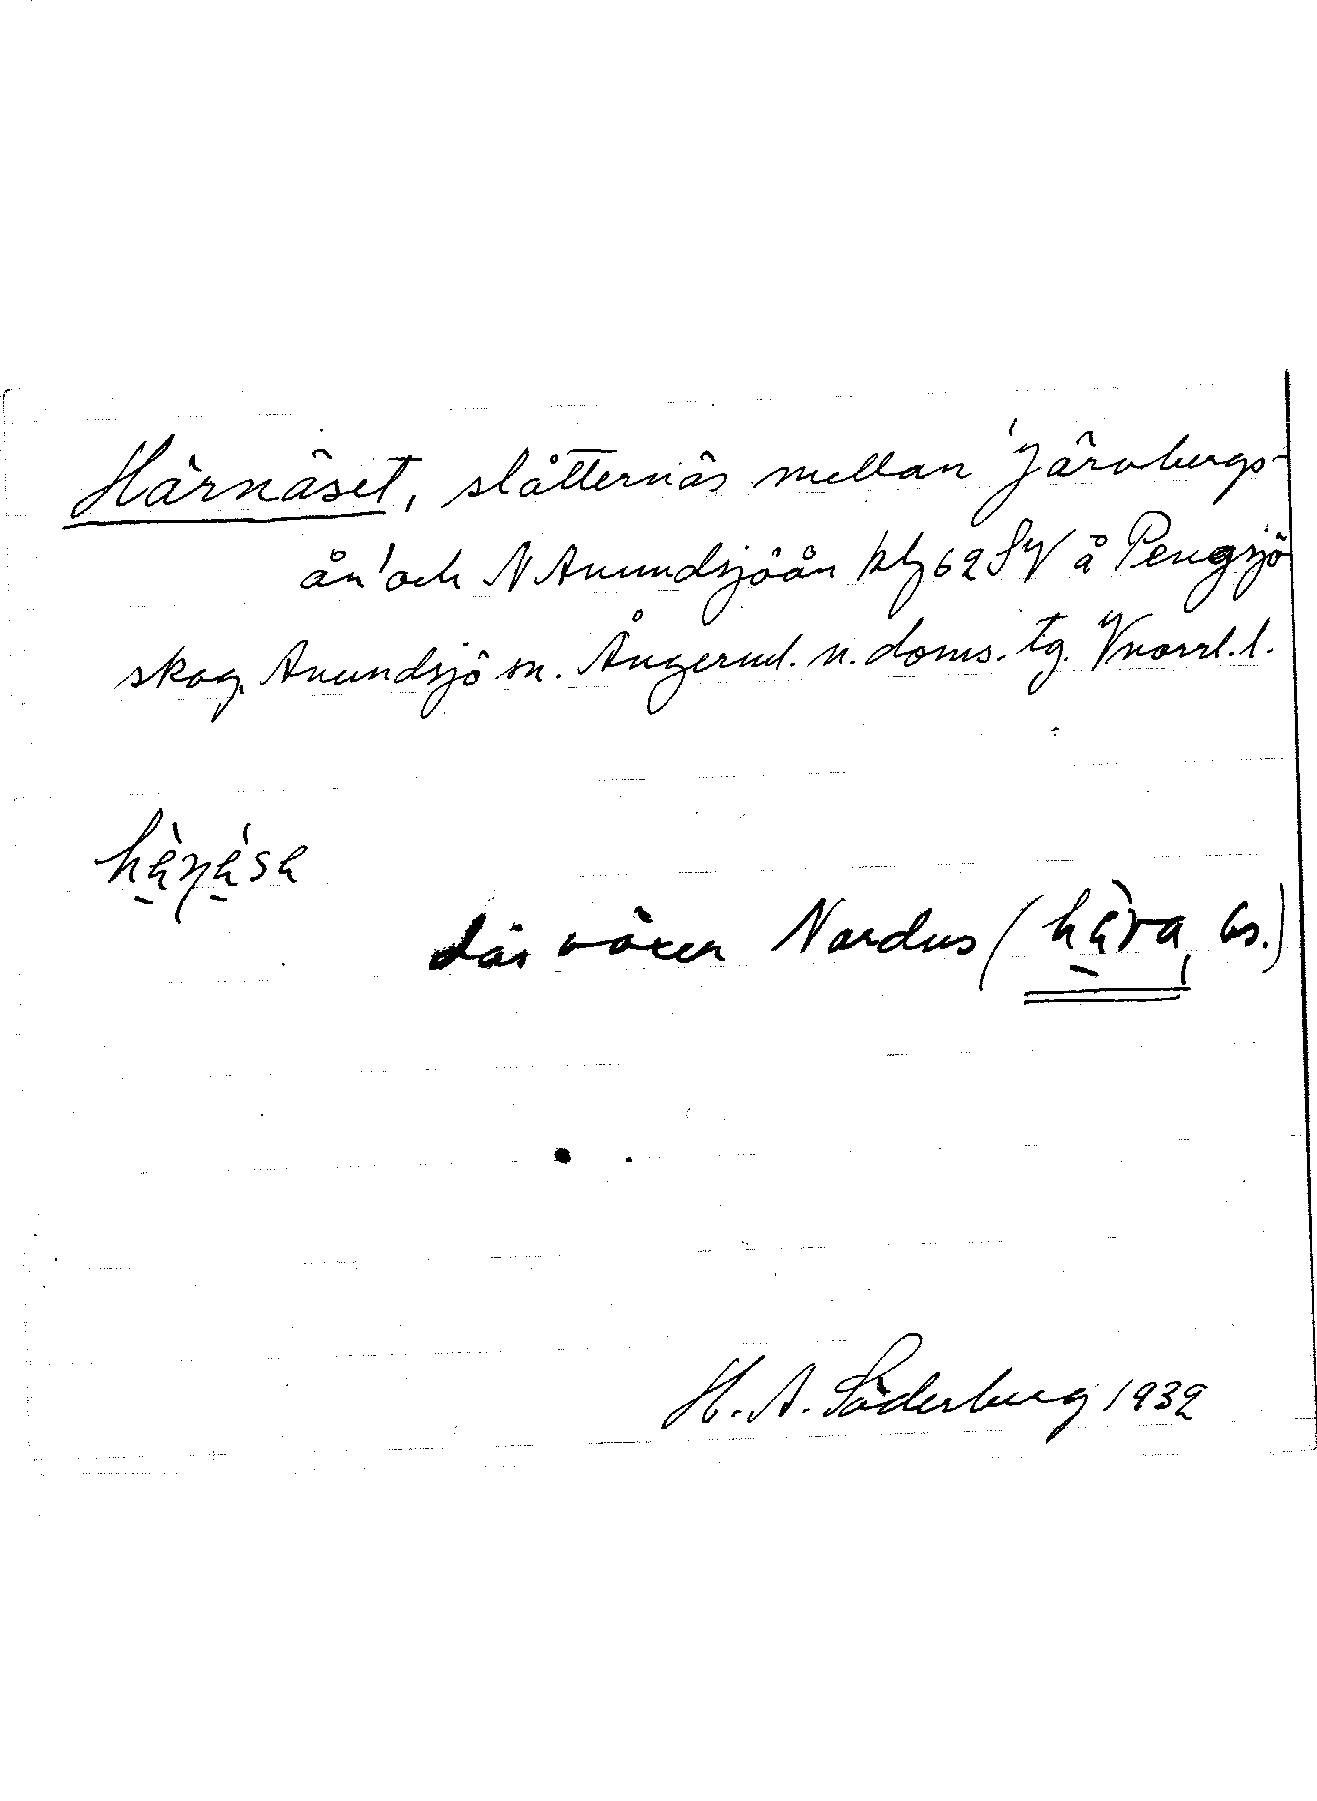 Härnäset, slåtternäs mellan 'Järvbergs-
ån' och N Anundsjöån kbg 62 SV å Pengsjö
skog, Anundsjö sn. Ångerml. n. doms. tg. Vnorrl. l.
där växer Nardus (hära, bs.)
H. A. Söderberg 1932